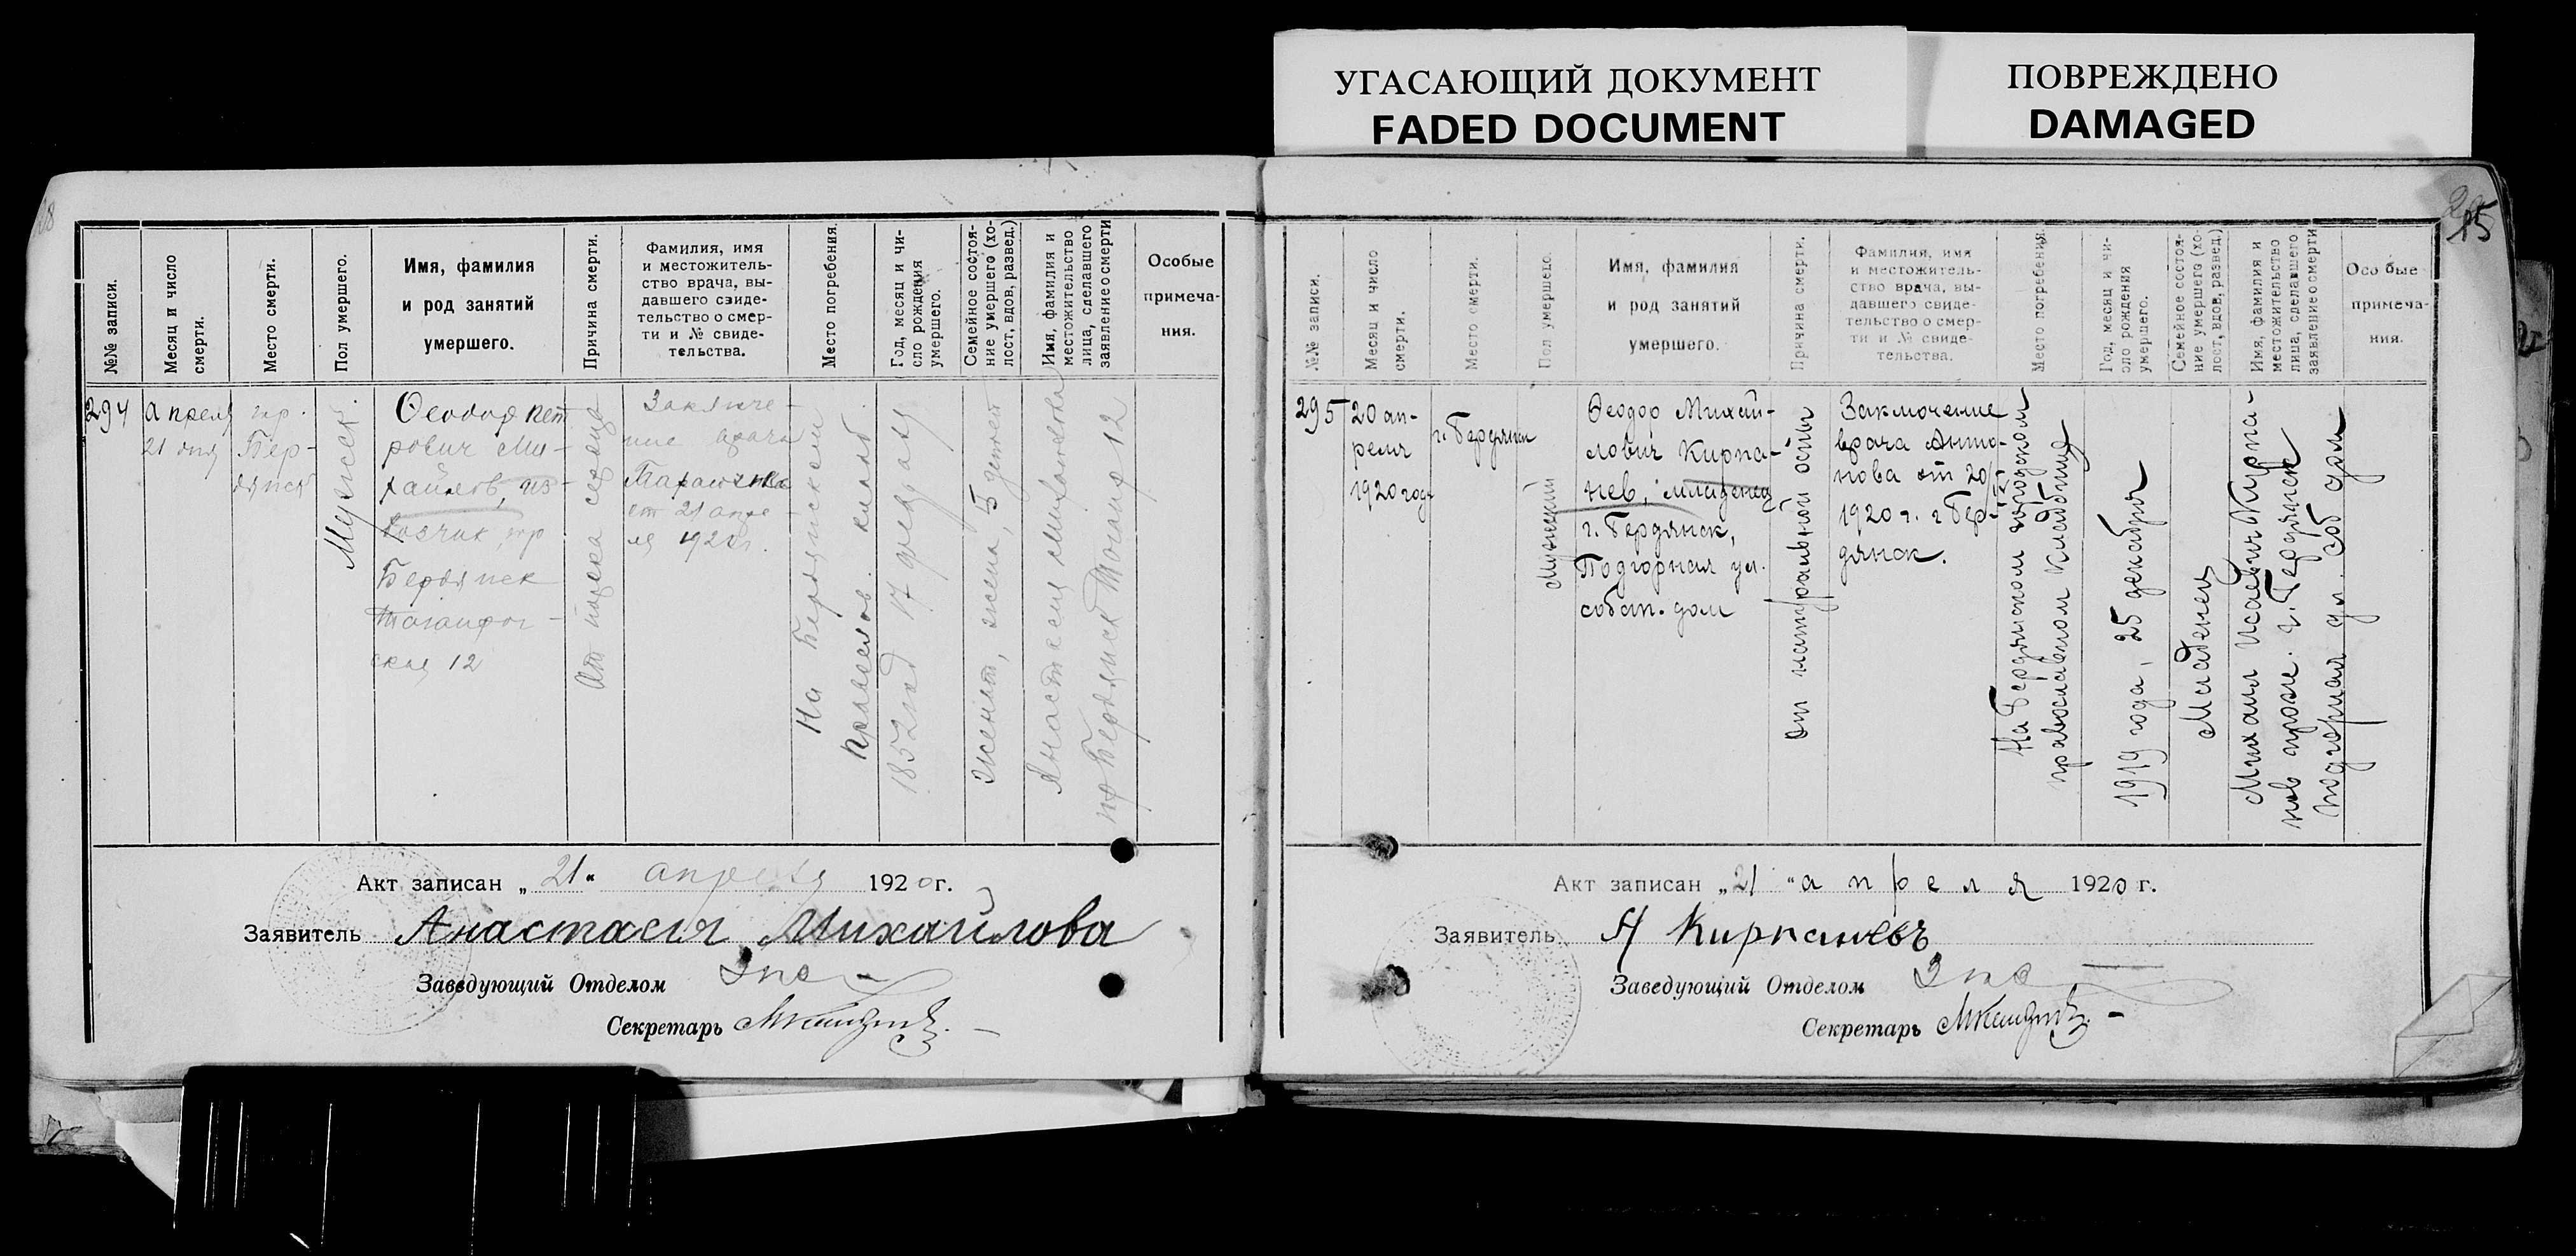 УГАСАЮЩИЙ ДОКУМЕНТ
FADED DOCUMENT
ПОВРЕЖДЕНО
DAMAGED
№№ записи.
Месяц и число
смерти.
Место смерти.
Пол умершего.
Имя, фамилия
и род занятий
умершего.
Причина смерти.
Фамилия, имя
и местожитель-
ство врача, вы-
давшего свиде-
тельство о смер-
ти и № свиде-
тельства.
Место погребения.
Год, месяц и чи-
сло рождения
умершего.
Семейное состоя-
ние умершего (хо-
лост, вдов, развед.)
Имя, фамилия и
местожительство
лица, сделавшего
заявление о смерти
Особые
примеча-
ния.
294
апреля
21 дня
гор.
Бер-
дянск
Мужск.
Феодор Пет
рович Ми-
хайлов, из-
возчик, гор
Бердянск
Таганрог-
ская 12
От порока сердца
Заключе-
ние врача
от 21 апре-
ля 1920г.
На Бердянском
православ. кладб
1852 год 17 февраля
женат, жена, 5 детей
Анастасия Михайлова
гор Бердянск Таганр 12
Акт записан „21“ апреля 1920г.
Заявитель Анастасия Михайлова
Заведующий Отделом
Секретарь
25
№№ записи.
Месяц и число
смерти.
Место смерти.
Пол умершего.
Имя, фамилия
и род занятий
умершего.
Причина смерти.
Фамилия, имя
и местожитель-
ство врача, вы-
давшего свиде-
тельство о смер-
ти и № свиде-
тельства.
Место погребения.
Год, месяц и чи-
сло рождения
умершего.
Семейное состоя-
ние умершего (хо-
лост, вдов, развед.)
Имя, фамилия и
местожительство
лица, сделавшего
заявление о смерти
Особые
примеча-
ния.
295
20 ап-
реля
1920 года
г. Бердянск
Мужской
Феодор Михай-
лович Кирпа-
нев, младенец
г. Бердянск,
Подгорная ул.
собст. дом
От натуральной оспы
Заключение
врача Анто-
нова от 20/IV
1920 г. г Бер-
дянск.
На Бердянском городском
православном кладбище
1919 года, 25 декабря
Младенец
Михаил Исаевич Кирпа-
нев прож. г. Бердянск
Подгорная ул. соб дом
Акт записан „21“ апреля 1920 г.
Заявитель Кирпаневъ
Заведующий Отделом
Секретарь